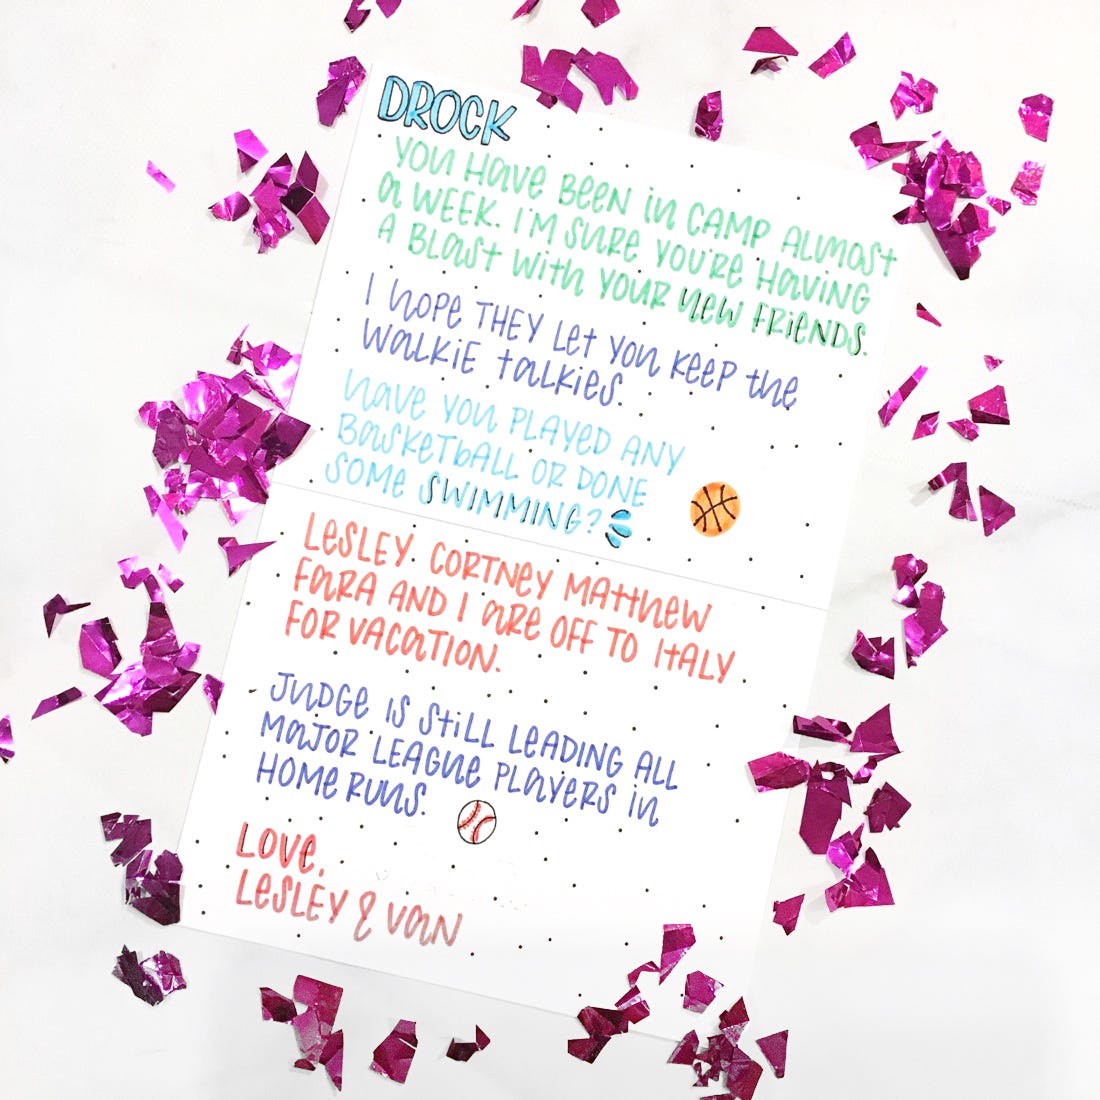 DROCK
You Have BEEN in CAMP ALMOST
a WEEK. I'M SURE YOU'RE HAVING
A BLAST WITH YOUR NEW FRIENDS.
I HOPE THEY LET YOU KEEP the
WALKIE TALKIES.
HAVE YOU PLAYED ANY
BASKETBALL OR DONE
SOME SWIMMING?
LESLEY. CORTNEY MATTHEW
FARA AND I aRE OFF TO ITALY
FOR VACATION.
JUDGE IS STILL LEADING ALL
MAJOR LEAGUE PLAYERS in
HOME RUNS.
LOVE,
LESLEY & VAN